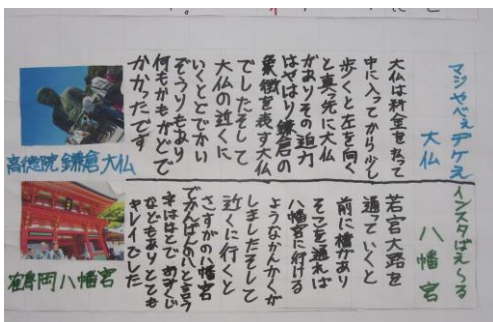 マジやべぇデケえ
大仏
大仏は料金を払って
中に入ってから少し
歩くと左を向く
と真っ先に大仏
がありその迫力
はやはり鎌倉の
象徴を表す大仏
でしたそして
大仏の近くに
いくととでかい
ぞうりもあり
何もかもがでで
かかったです
高徳院鎌倉大仏
インスタばえ〜る
八幡宮
若宮大路を
通っていくと
前に橋があり
そこを通れば
八幡宮に行ける
ようなかんかくが
しましたそして
近くに行くと
さすがの八幡宮
でかんばんの八と言う
字ははとで
などもありとても
キレイでした
鶴岡八幡宮